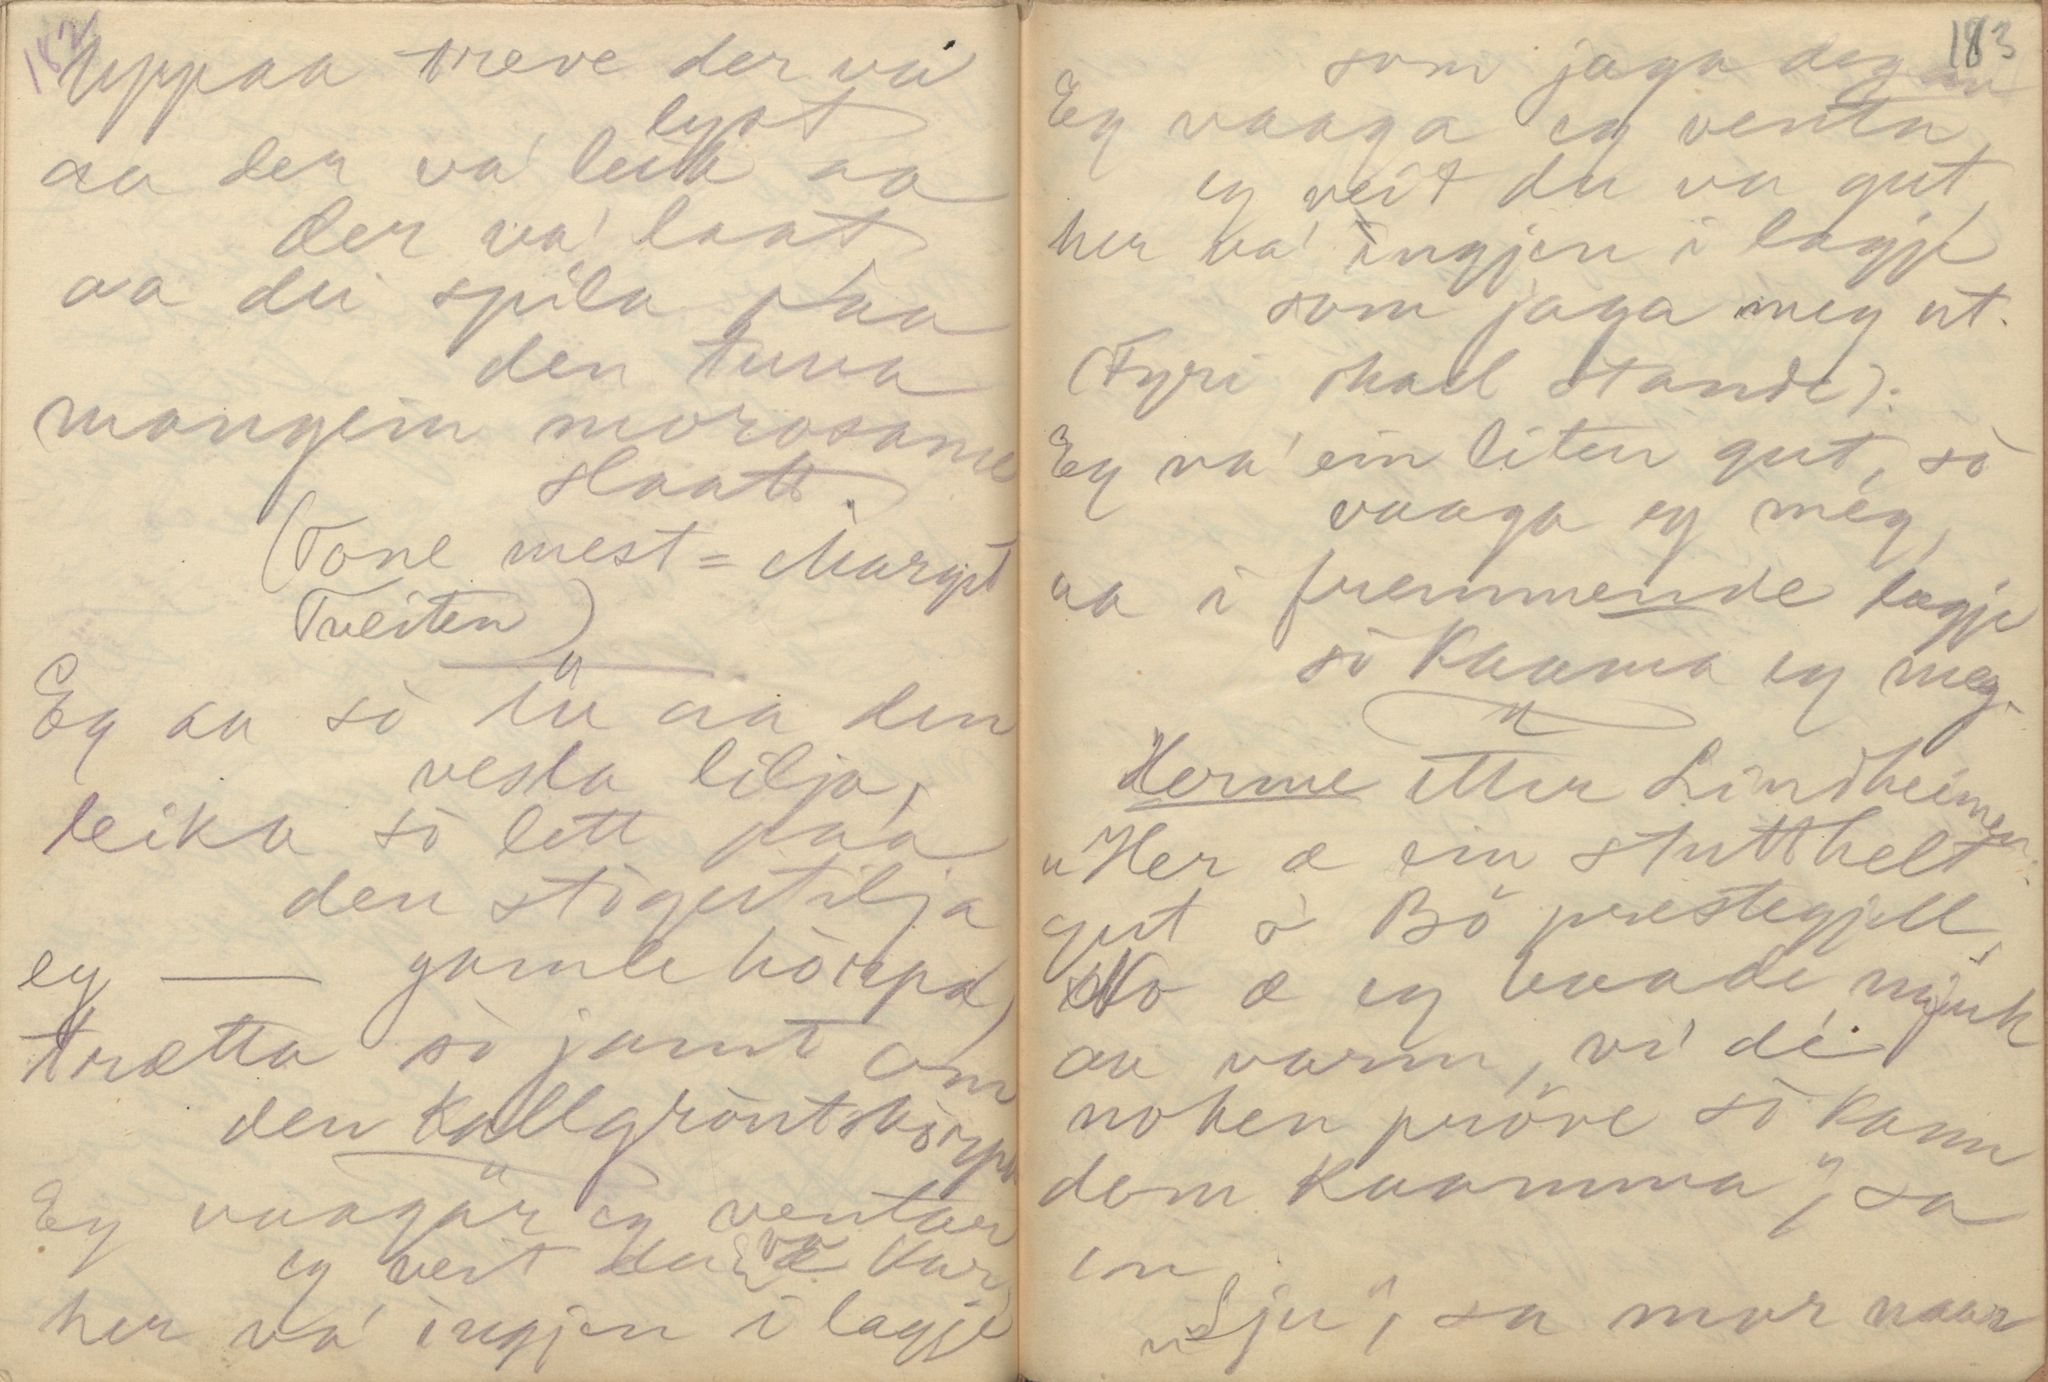 182
Uppaa treve der va'
lyst
aa der va' leik aa
der va' laat
aa dei spila paa
den tuva
mangein morosame
slaatt.
(Tone mest = Margit
Tveiten)
Eg aa so tu aa den
vesla lilja,
leika so lett paa
den stogutilja
eg — gamle hörpa,
trætta so jamt om
den kallgröntshörpa
Eg vaagar eg ventar
eg veit du va kar,
her va' ingjen i lagje
183
som jaga deg av
Eg vaaga eg venta,
eg veit du va gut,
her va' ingjen i lagje
som jaga meg ut.
(Fyri skall stande):
Eg va' ein liten gut, so
vaaga eg meg,
aa i fremmende lagje
so kaama eg meg.
Herme etter Lindheimen.
"Her æ ein stutthelt
gut i Bö prestegjell,
No æ eg baade mjuk
aa varm, vi' dei
noken pröve so kann
dem kaamma", sa
en
"Lju", sa mor naar